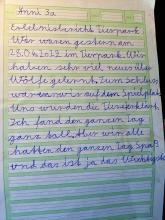 Anni 3a
Erlebnisbericht Tierpark
Wir waren gestern am
28.04.2012 im Tierpark. Wir
haben sehr viel neues über
Wölfe gelernt. Zum Schluss
waren wir auf dem Spielplatz
Uns wurden die Tiere erklärt.
Ich fand den ganzen Tag
ganz toll. Aber wir alle
hatten den ganzen Tag Spaß
und das ist ja das Wichtigste